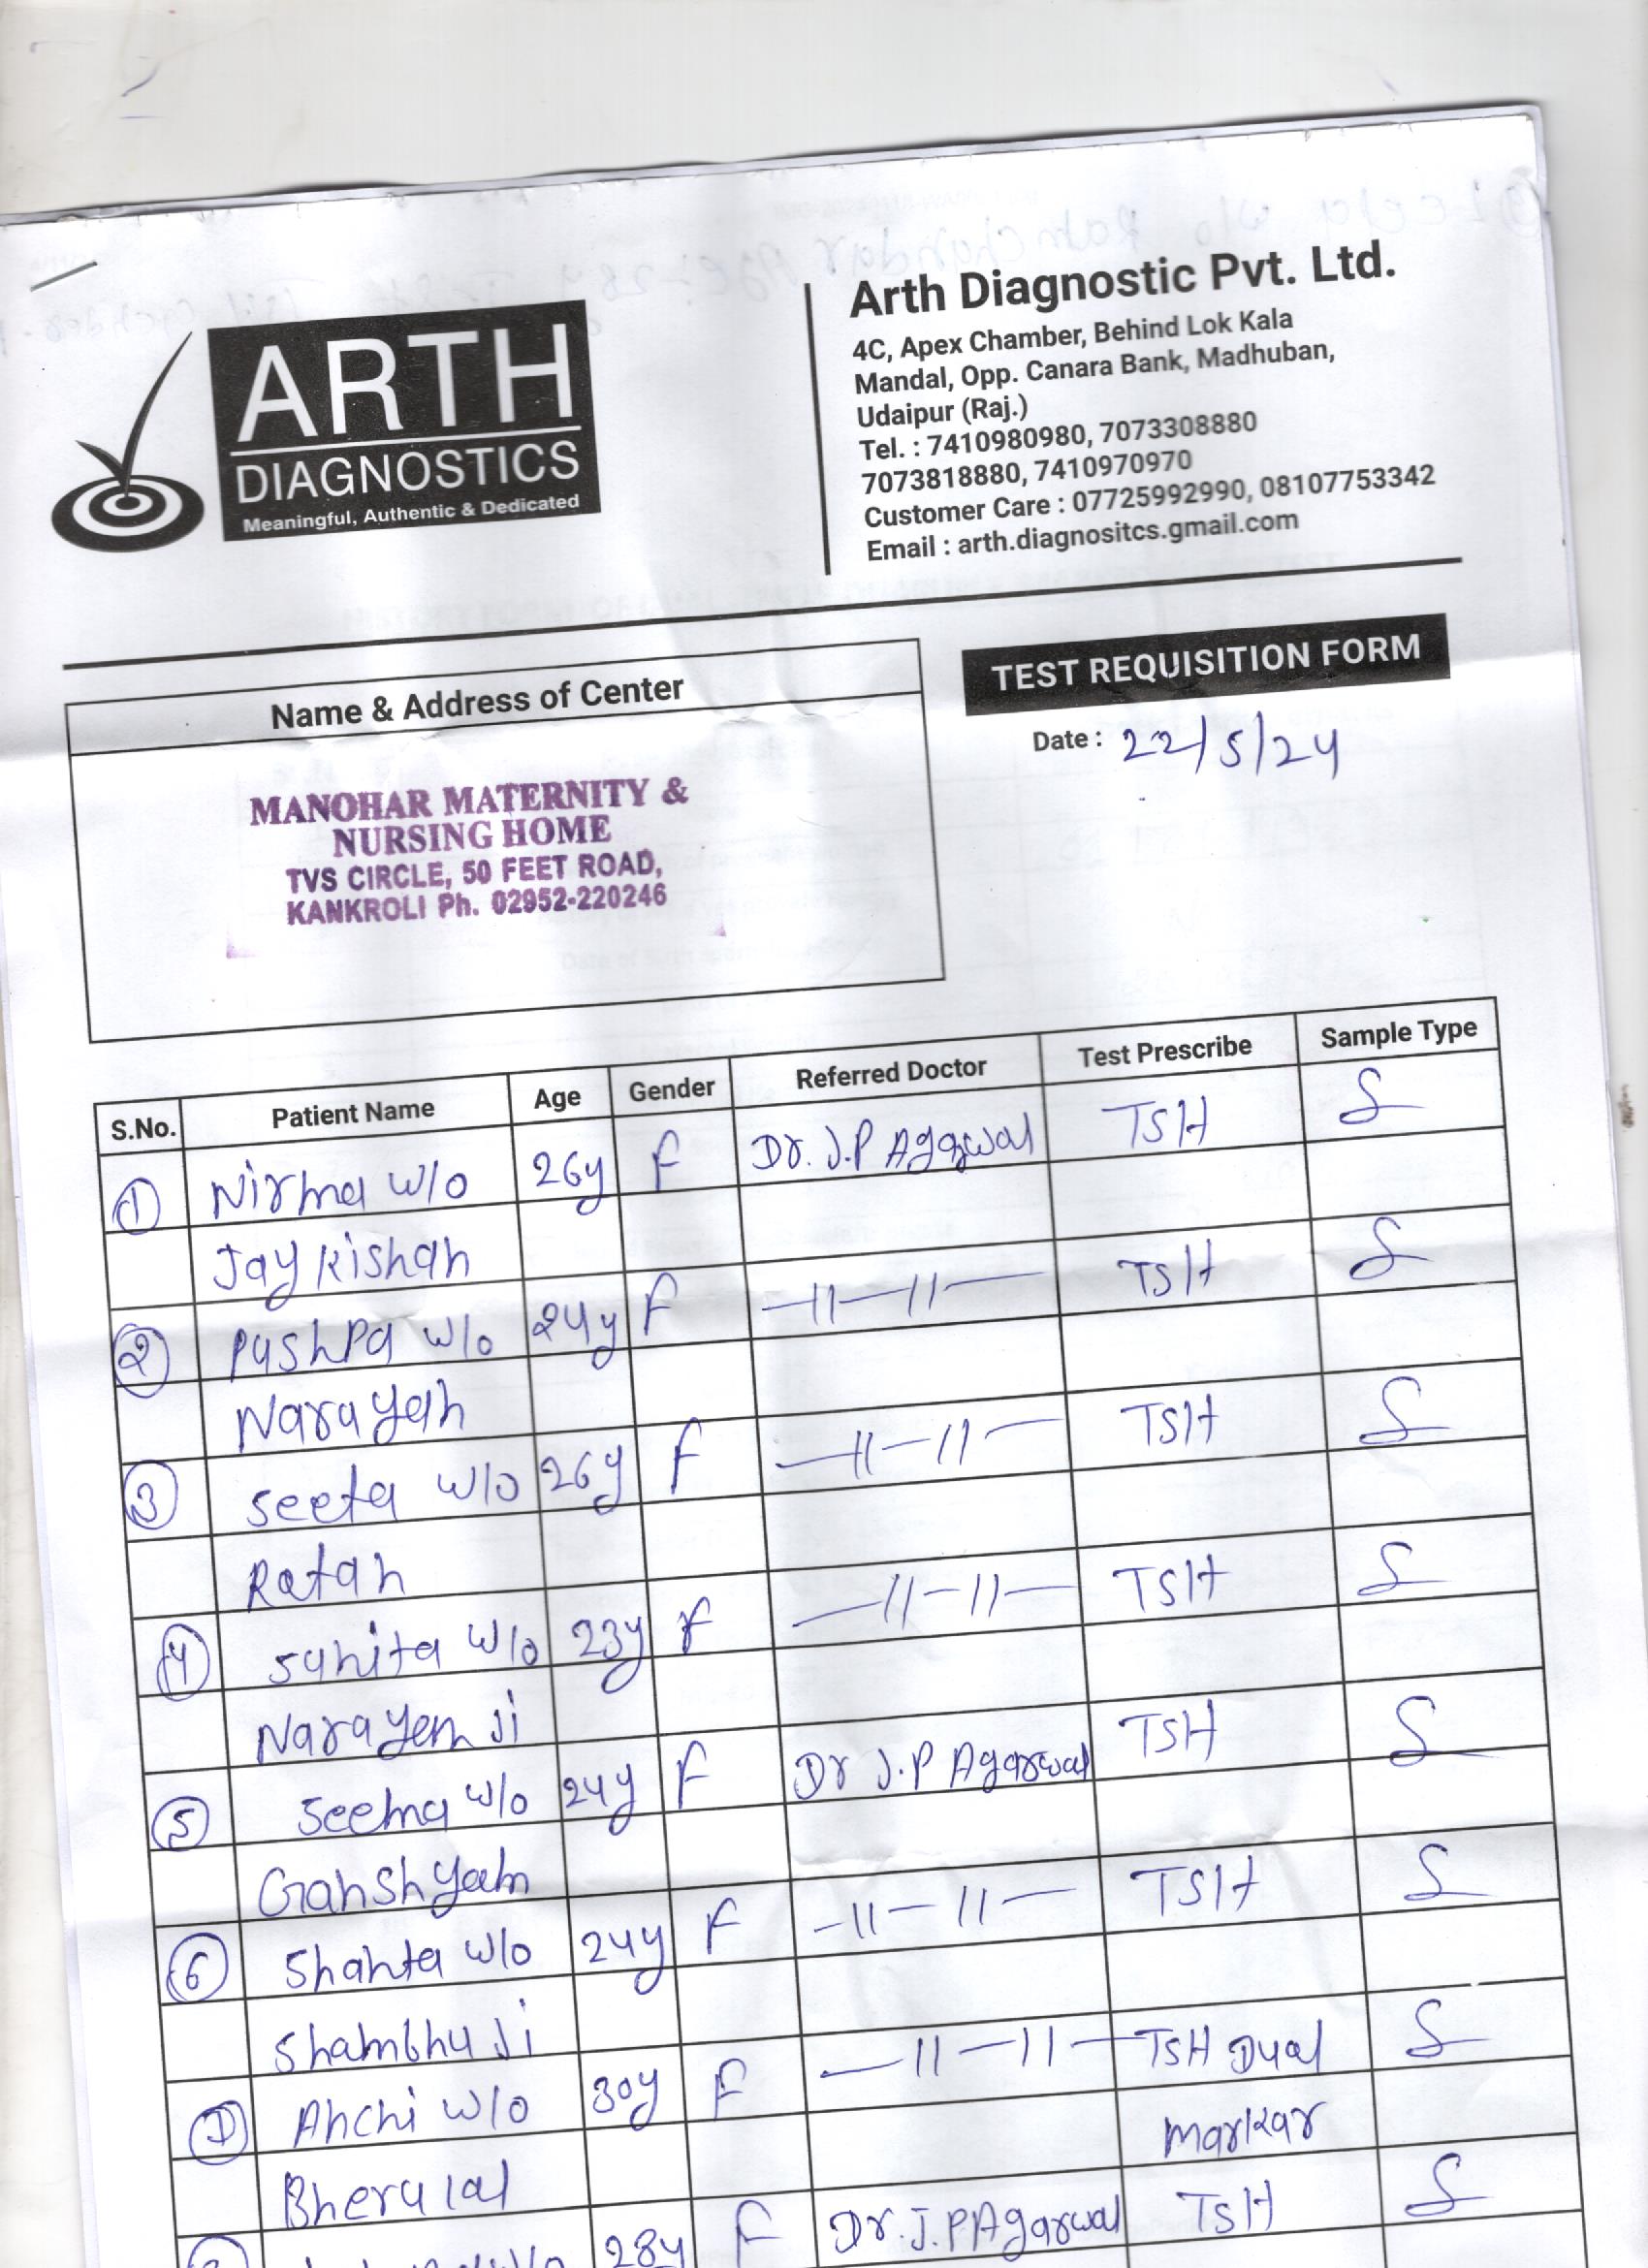 ARTH
DIAGNOSTICS
Meaningful, Authentic & Dedicated
Arth Diagnostic Pvt. Ltd.
4C, Apex Chamber, Behind Lok Kala
Mandal, Opp. Canara Bank, Madhuban,
Udaipur (Raj.)
Tel. : 7410980980, 7073308880
7073818880, 7410970970
Customer Care : 07725992990, 08107753342
Email : arth.diagnositcs.gmail.com
Name & Address of Center
MANOHAR MATERNITY &
NURSING HOME
TVS CIRCLE, 50 FEET ROAD,
KANKROLI Ph. 02952-220246
TEST REQUISITION FORM
Date : 22/5/24
S.No. Patient Name Age Gender Referred Doctor Test Prescribe Sample Type
1 Nirma w/o 26y F Dr. J.P Agarwal TSH S
Jaykishan
2 Pushpa w/o 24y F —11—11— TSH S
Narayan
3 Seeta w/o 26y F —11—11— TSH S
Ratan
4 Sunita w/o 23y F —11—11— TSH S
Narayan Ji
5 Seema w/o 24y F Dr J.P Agarwal TSH S
Ganshyam
6 Shanta w/o 24y F —11—11— TSH S
Shambhu Ji
7 Anchi w/o 30y F —11—11— TSH Dual S
Bherulal Markar
28y F Dr. J.P Agarwal TSH S